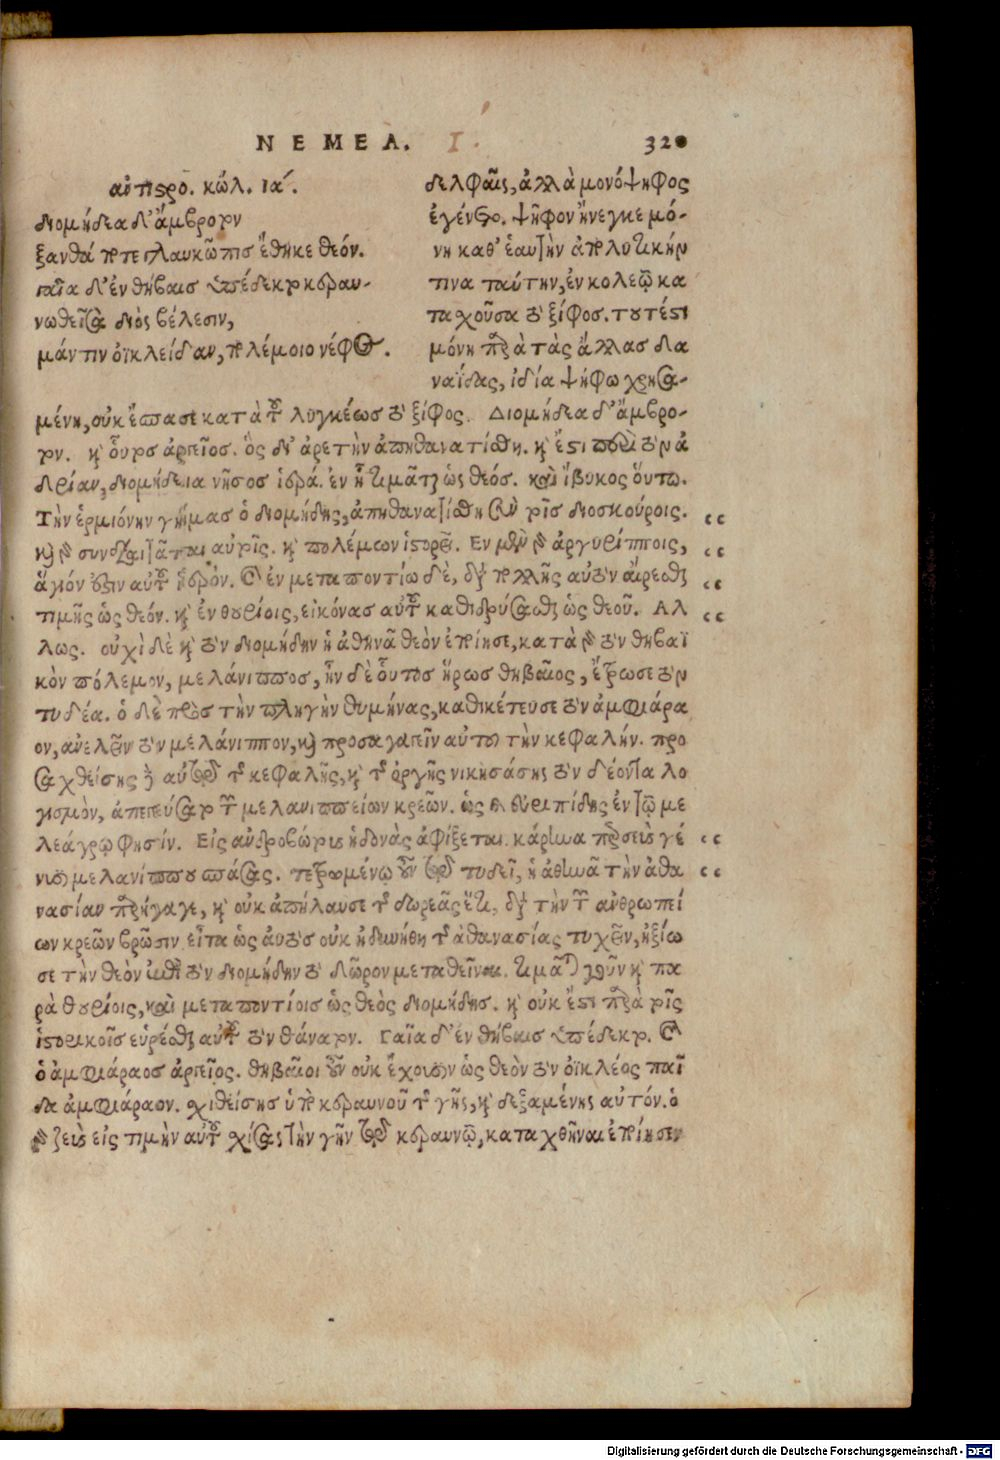 ΝΕΜΕΑ. I. 320
ἀντιστρο. κώλ. ια΄.
διομήδεα δ' ἄμβροτον
ξανθά ποτε γλαυκῶπις ἔθηκε θεόν.
γαῖα δ' ἐν θήβαις ὑπέδεκτο κεραυ-
νωθεῖσα διὸς βέλεσιν,
μάντιν ὀϊκλείδαν, πολέμοιο νέφος.
δελφαῖς, ἀλλὰ μονόψηφος
ἐγένετο. ψῆφον ἤνεγκε μό-
νη καθ' ἑαυτὴν ἀπολυτικήν
τινα ταύτην, ἐν κολεῷ κα
τασχοῦσα τὸ ξίφος. τουτέστι
μόνη παρὰ τὰς ἄλλας δα
ναΐδας, ἰδία ψήφω χρησα-
μένη, οὐκ ἔσπασε κατὰ τοῦ λυγκέως τὸ ξίφος. Διομήδεα δ' ἄμβρο-
τον. καὶ οὗτος ἀργεῖος. ὃς δι' ἀρετὴν ἀπηθανατίσθη. καὶ ἔστι περὶ τὸν ἀ
δρίαν, διομήδεια νῆσος ἱερά. ἐν ᾗ τιμᾶται ὡς θεός. καὶ ἴβυκος οὕτω.
Τὴν ἑρμιόνην γήμας ὁ διομήδης, ἀπηθανατίσθη σὺν τοῖς διοσκούροις.
καὶ γὰρ συνδιαιτᾶται αὐτοῖς. καὶ πολέμων ἱστορεῖ. Ἐν μὲν γὰρ ἀργυρίπποις,
ἅγιόν ἐστιν αὐτοῦ ἱερόν. καὶ ἐν μεταποντίω δὲ, διὰ πολλῆς αὐτὸν αἴρεσθαι
τιμῆς ὡς θεόν. καὶ ἐν θουρίοις, εἰκόνας αὐτοῦ καθιδρύσασθαι ὡς θεοῦ. Αλ
λως. οὐχὶ δὲ καὶ τὸν διομήδην ἡ ἀθηνᾶ θεὸν ἐποίησε, κατὰ γὰρ τὸν θηβαϊ
κὸν πόλεμον, μελάνιππος, ἦν δὲ οὗτος ἥρως θηβαῖος, ἔτρωσε τὸν
τυδέα. ὁ δὲ πρὸς τὴν πληγὴν θυμήνας, καθικέτευσε τὸν ἀμφιάρα
ον, ἀνελεῖν τὸν μελάνιππον, καὶ προσαγαγεῖν αὐτοῦ τὴν κεφαλήν. προ
σαχθείσης δὲ αὐτῷ τῆς κεφαλῆς, καὶ τῆς ὀργῆς νικησάσης τὸν δέοντα λο
γισμὸν, ἀπεγεύσατο τῶν μελανιππείων κρεῶν. ὡς καὶ εὐριπίδης ἐν τῷ με
λεάγρῳ φησίν. Εἰς ἀνδροβῶτας ἡδονὰς ἀφίξεται. κάρηνα πυρσαῖς γέ
νυσι μελανίππου σπάσας. τετρωμένῳ οὖν τῷ τυδεῖ, ἡ ἀθηνᾶ τὴν ἀθα
νασίαν παρήγαγε, καὶ οὐκ ἀπήλαυσε τῆς δωρεᾶς ἔτι, διὰ τὴν τῶν ἀνθρωπεί
ων κρεῶν βρῶσιν. εἶτα ὡς αὐτὸς οὐκ ἠδυνήθη τῆς ἀθανασίας τυχεῖν, ἠξίω
σε τὴν θεὸν ἐπὶ τὸν διομήδην τὸ δῶρον μεταθεῖναι. τιμᾶται γοῦν καὶ πα
ρὰ θουρίοις, καὶ μεταποντίοις ὡς θεὸς διομήδης. καὶ οὐκ ἔστι παρὰ τοῖς
ἱστορικοῖς εὑρέσθαι αὐτοῦ τὸν θάνατον. Γαῖα δ' ἐν θήβαις ὑπέδεκτο. καὶ
ὁ ἀμφιάραος ἀργεῖος. θηβαῖοι οὖν οὐκ ἔχουσιν ὡς θεὸν τὸν ὀϊκλέος παῖ
δα ἀμφιάραον. σχισθείσης ὑπὸ κεραυνοῦ τῆς γῆς, καὶ δεξαμένης αὐτόν. ὁ
γὰρ ζεὺς εἰς τιμὴν αὐτοῦ σχίσας τὴν γῆν τῷ κεραυνῷ, καταχθῆναι ἐποίησεν
Digitalisierung gefördert durch die Deutsche Forschungsgemeinschaft - DFG